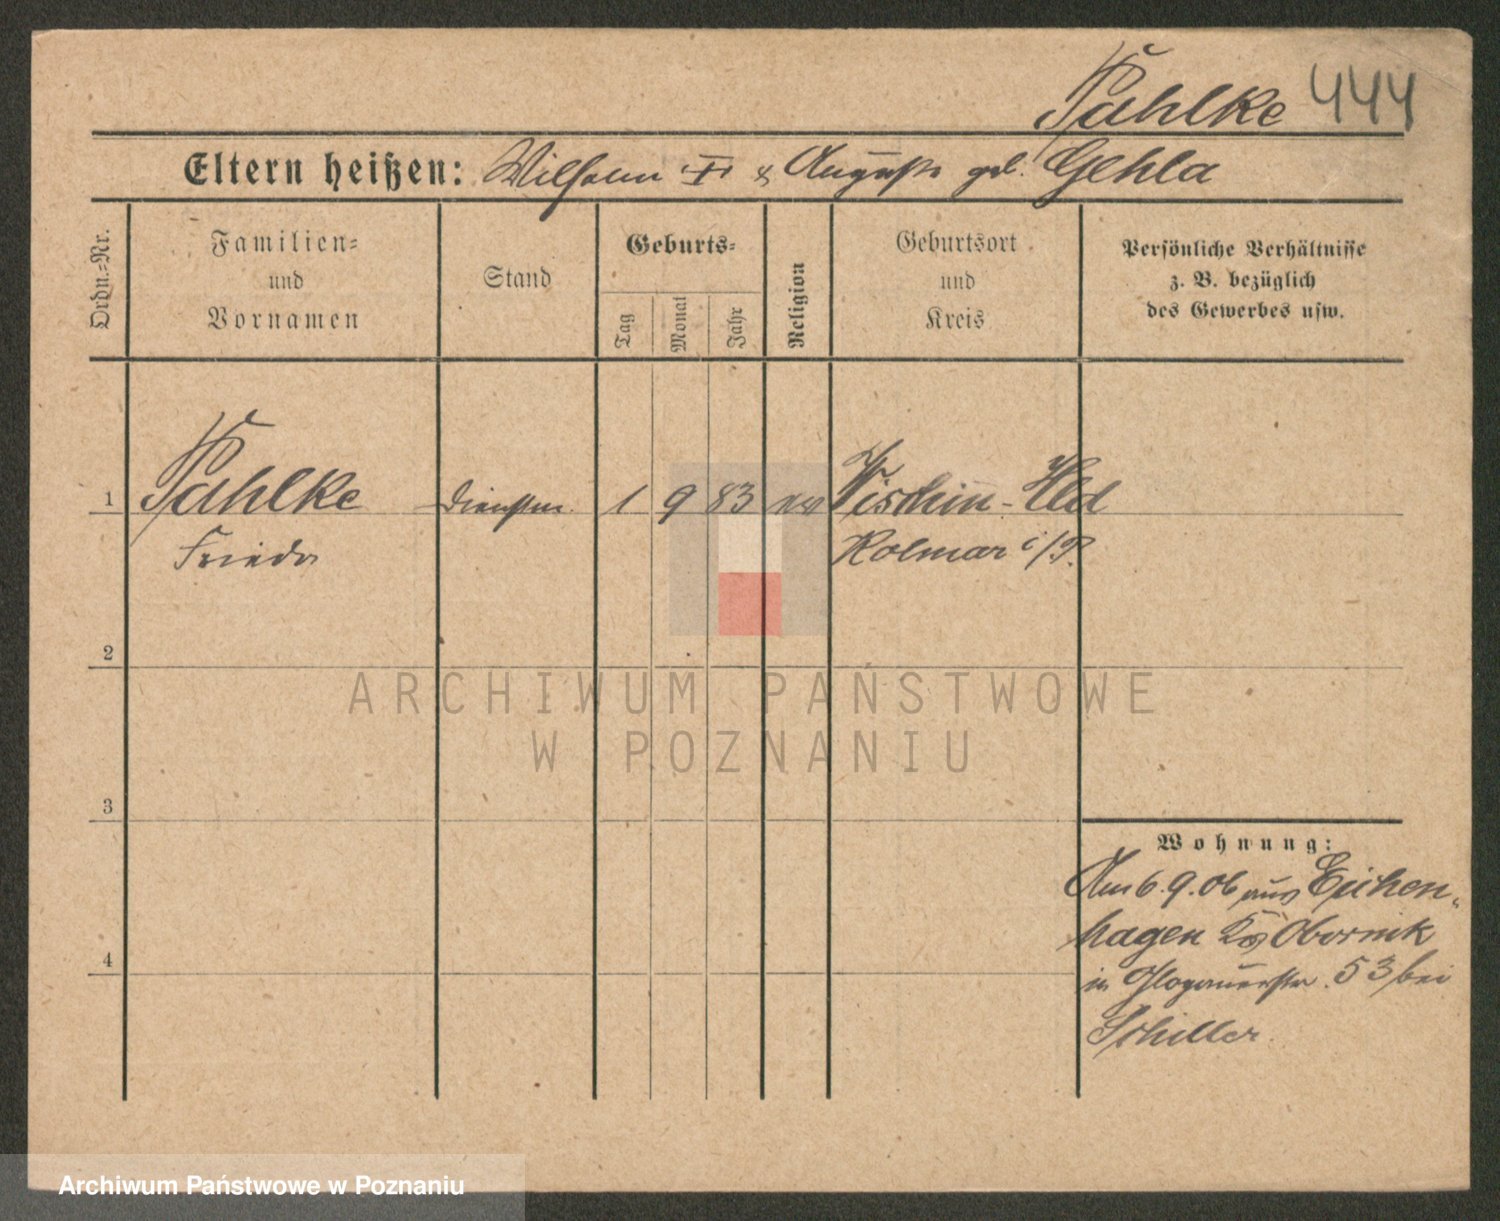 Pahlke 444
Eltern heißen: Wilhelm & Auguste geb. Gehla
Ordn.-Nr.
Familien- und Vornamen
Stand
Geburts-
Tag
Monat
Jahr
Religion
Geburtsort und Kreis
Persönliche Verhältnisse
z. B. bezüglich
des Gewerbes usw.
1 Pahlke Dienstm. 1 9 83 ev
Frieda Kolmar i/P.
2
ARCHIWUM PAŃSTWOWE
W POZNANIU
3
Wohnung:
Am 6.9.06 aus Eichen-
hagen Krs Obornik
4
in Glogauerstr. 53 bei
Schiller.
Archiwum Państwowe w Poznaniu